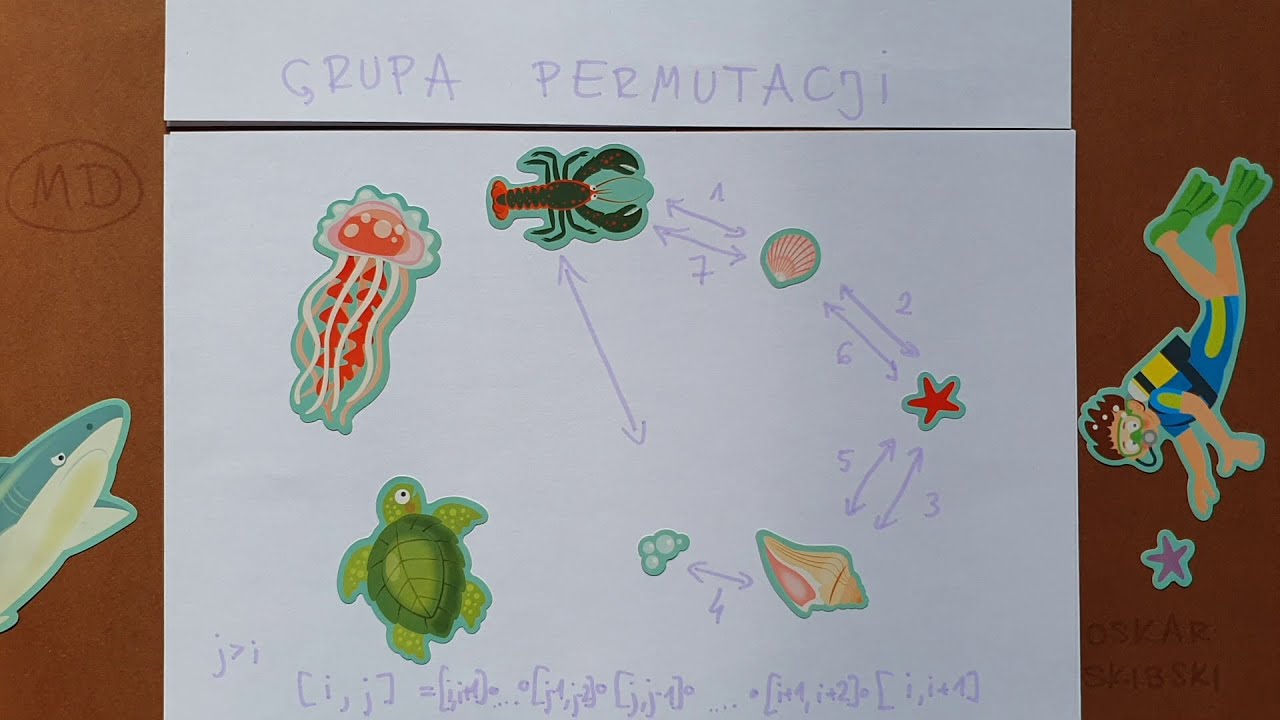 GRUPA PERMUTACJI
MD
1
7
2
6
5
3
4
j>i
[i,j] =[i,i+1]∘....∘[j-1,j-2]∘[j,j-1]∘ ....∘[i+1,i+2]∘[i,i+1]
OSKAR
SKIBSKI